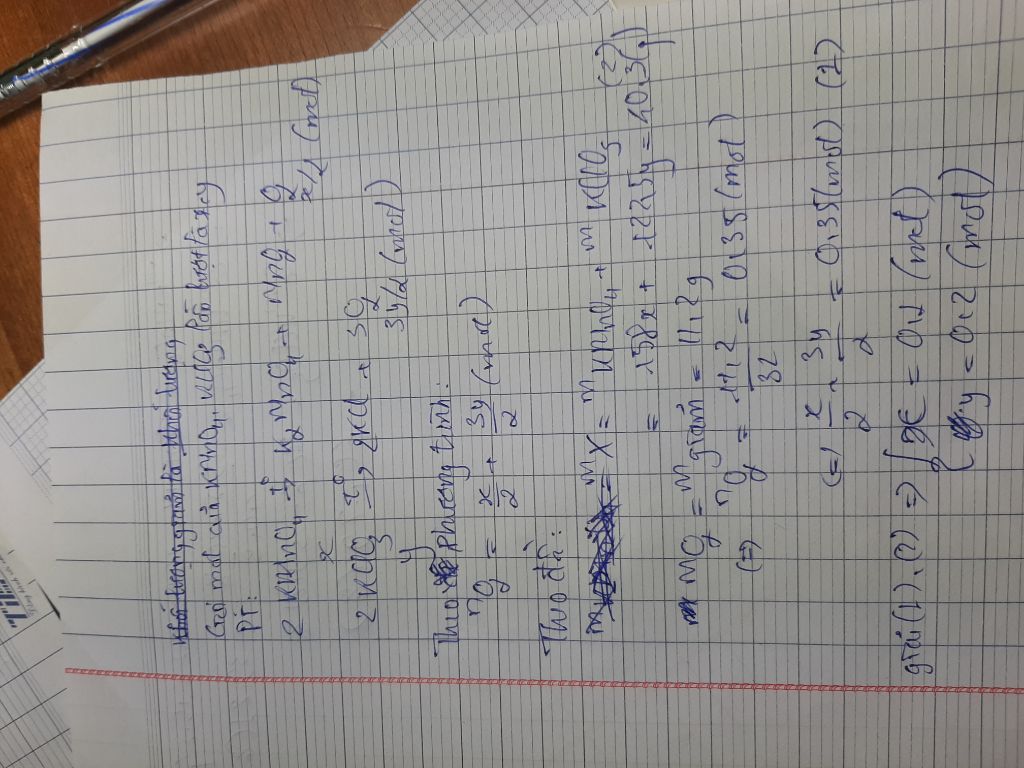 Khối lượng giảm là khối lượng
Gọi mol của KMnO4, KClO3 lần lượt là x, y
PT:
2 KMnO4 t° → K2MnO4 + MnO2 + O2
x x/2 (mol)
2 KClO3 t° → 2KCl + 3O2
y 3y/2 (mol)
Theo phương trình:
nO2 = x/2 + 3y/2 (mol)
Theo đề:
mX = mKMnO4 + mKClO3
= 158x + 122,5y = 40,3 (1)
mO2 = m giảm = 11,2 g
(=) nO2 = 11,2/32 = 0,35 (mol)
(=) x/2 + 3y/2 = 0,35 (mol) (2)
giải (1), (2) => { x = 0,1 (mol)
y = 0,2 (mol)